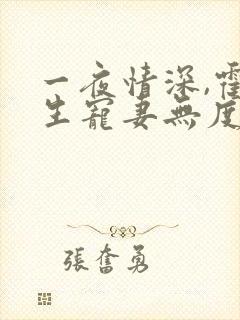 一夜情深,霍
生寵妻無度
張奮勇